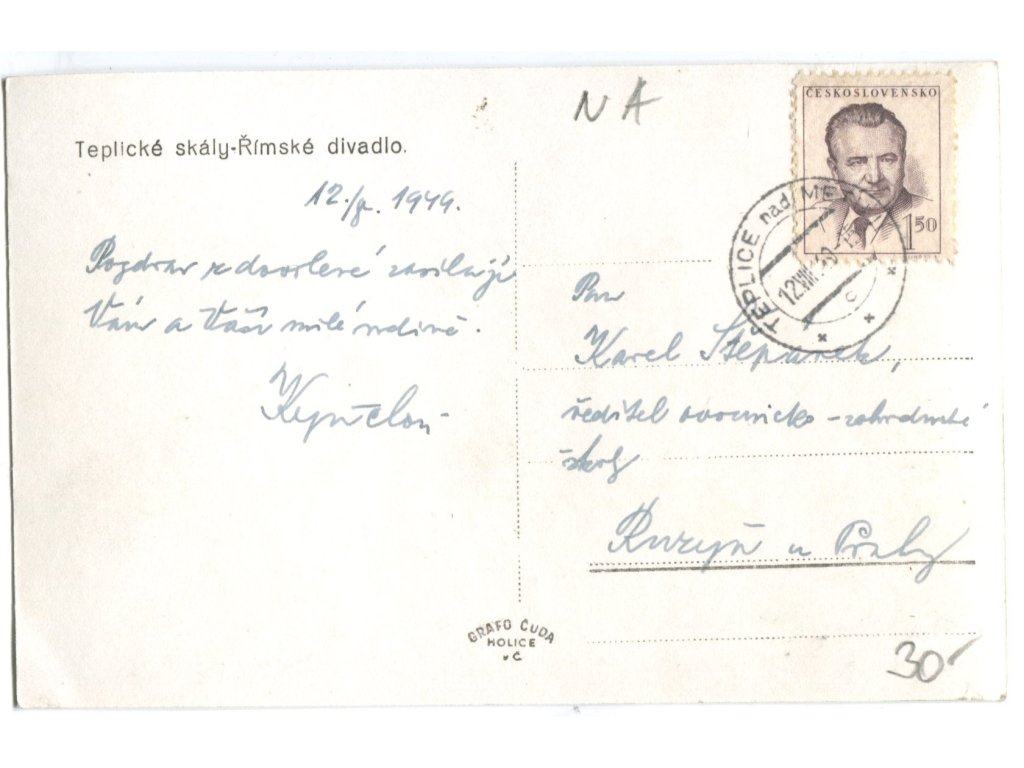 Teplické skály-Římské divadlo.
NA
ČESKOSLOVENSKO
1 50
TEPLICE nad MET
12.VIII.49
12./8. 1949.
Pozdrav z dovolené zasílají
Vám a Vaší milé rodině.
Pan
Karel Štěpánek,
ředitel ovocnicko-zahradnické
školy
Ruzyň u Prahy
GRAFO ČUDA
HOLICE
v Č
30